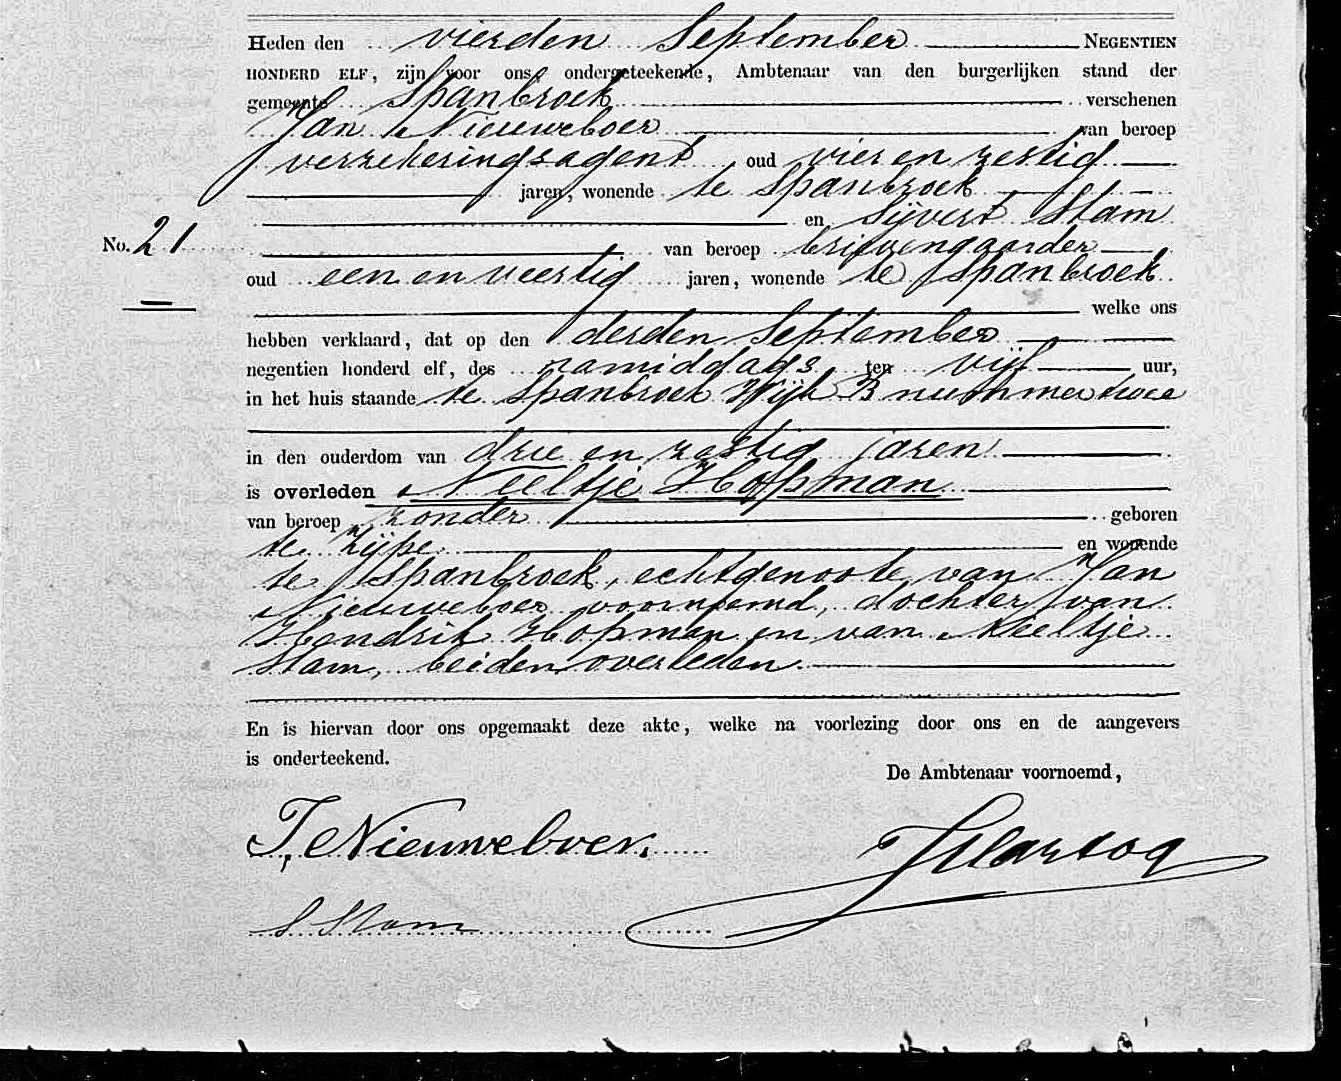 Heden den vierden September NEGENTIEN
HONDERD ELF, zijn voor ons ondergeteekende, Ambtenaar van den burgerlijken stand der
gemeente Spanbroek verschenen
Jan Nieuweboer van beroep
verzekeringsagent oud vier en zestig
jaren, wonende te Spanbroek
en Sijvert Stam
No. 21 van beroep brievengaarder
oud een en veertig jaren, wonende te Spanbroek
welke ons
hebben verklaard, dat op den derden September
negentien honderd elf, des namiddags ten vijf uur,
in het huis staande te Spanbroek Wijk B nummer twee
in den ouderdom van drie en zestig jaren
is overleden Neeltje Hopman
van beroep zonder geboren
te Zijpe en wonende
te Spanbroek, echtgenoote van Jan
Nieuweboer voornoemd, dochter van
Hendrik Hopman en van Neeltje
Stam, beiden overleden
En is hiervan door ons opgemaakt deze akte, welke na voorlezing door ons en de aangevers
is onderteekend.
De Ambtenaar voornoemd,
J. Nieuweboer.
Hartog
S Stam